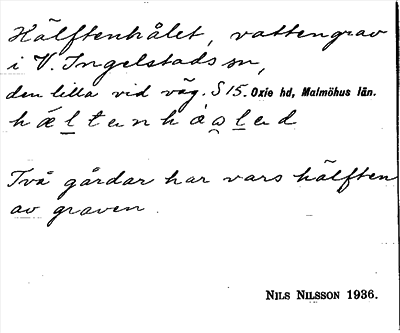 Hälftenhålet, vattengrav
i V. Ingelstads sn,
den lilla vid väg. S 15. Oxie hd, Malmöhus län.
Två gårdar har vars hälften
av graven.
NILS NILSSON 1936.